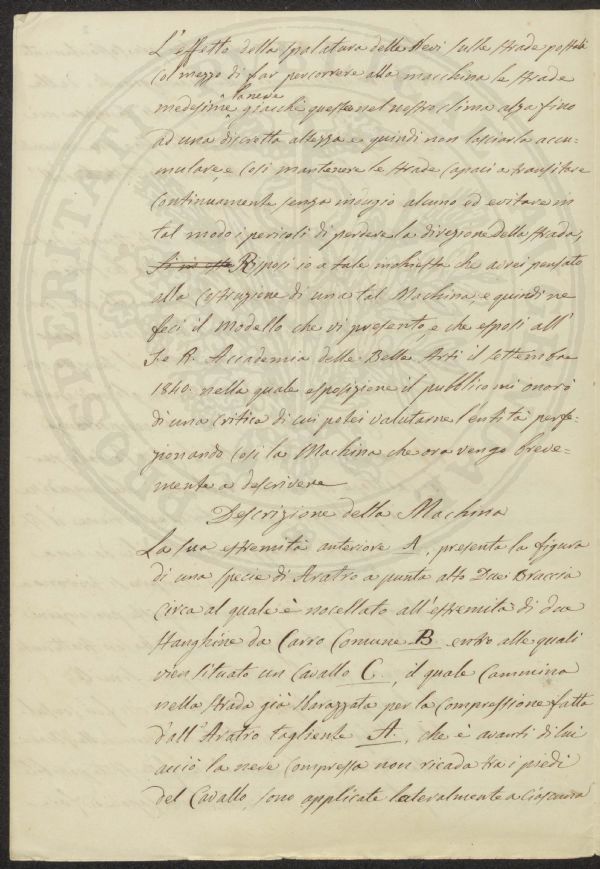 L'effetto della spalatura delle Nevi sulle strade postali
col mezzo di far percorrere alla macchina le strade
medesime la neve giacchè queste nel nostro clima alza fino
ad una discretta altezza e quindi non lasciarla accu-
mulare, e così mantenere le strade capaci a transitare
continuamente senza indugio alcuno ed evitare in
tal modo i pericoli di perdere la direzione della strada,
Risposi io a tale inchiesta che avrei pensato
alla costruzione di una tal Machina, e quindi ne
feci il Modello che vi presento, e che esposi all'
I. e R. Accademia delle Belle Arti il settembre
1840. nella quale esposizione il pubblico mi onorò
di una critica di cui potei valutarne l'entità perfe-
zionando così la Machina che ora vengo breve-
mente a descrivere
Descrizione della Machina
La sua estremità anteriore A, presenta la figura
di una specie di Aratro a punta alto Due Braccia
circa al quale è nocellato all'estremità di due
stanghine da Carro Comune B entro alle quali
vien situato un Cavallo C, il quale Cammina
nella strada già sbarazzata per la compressione fatta
d'all'Aratro tagliente A. che è avanti di lui
acciò la neve compressa non ricada tra i piedi
del Cavallo, sono applicate lateralmente a ciascuna
PROSPERITATI PUBLICAE